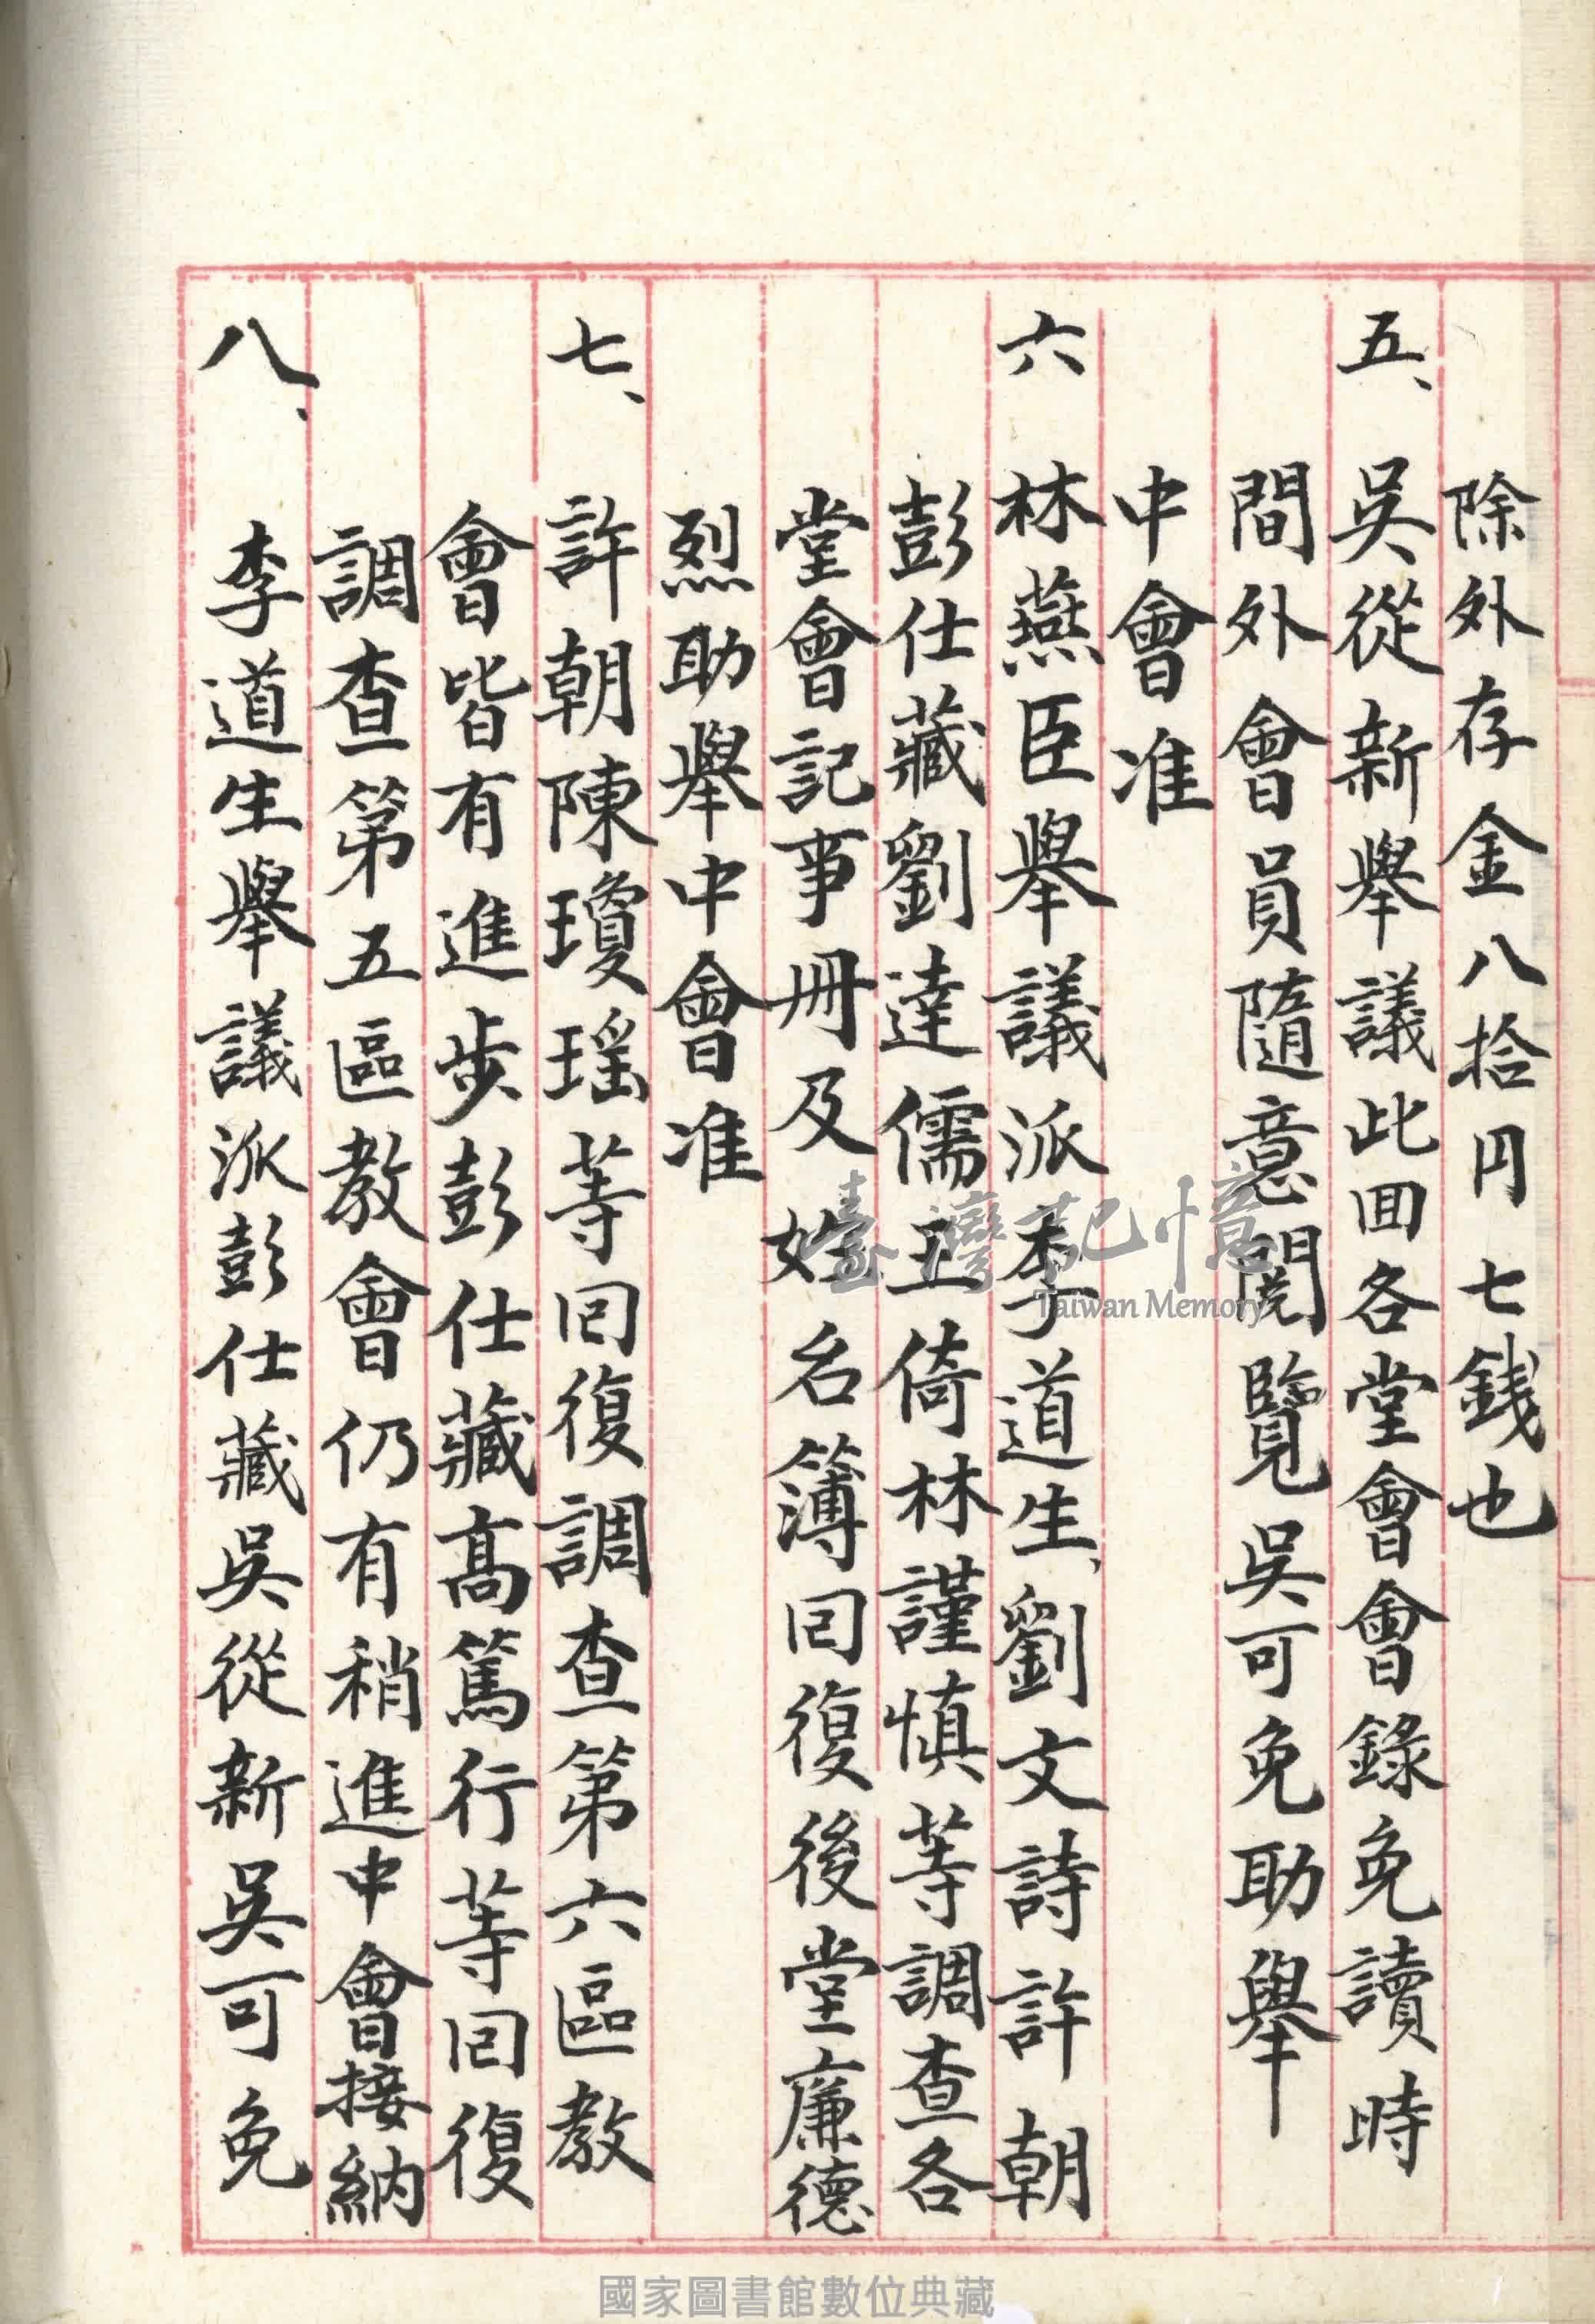 除外存金八拾円七銭也
五、吳從新舉議此回各堂會會錄免讀時
間外會員隨意閱覽吳可免助舉
中會准
六 林燕臣舉議派李道生、劉文詩許朝
彭仕藏劉達儒王倚林謹慎等調查各
堂會記事冊及姓名簿回復後堂廉德
烈助舉中會准
七、許朝陳瓊瑤等回復調查第六區教
會皆有進步彭仕藏高篤行等回復
調查第五區教會仍有稍進中會接納
八、李道生舉議派彭仕藏吳從新吳可免
臺灣記憶
Taiwan Memory
國家圖書館數位典藏